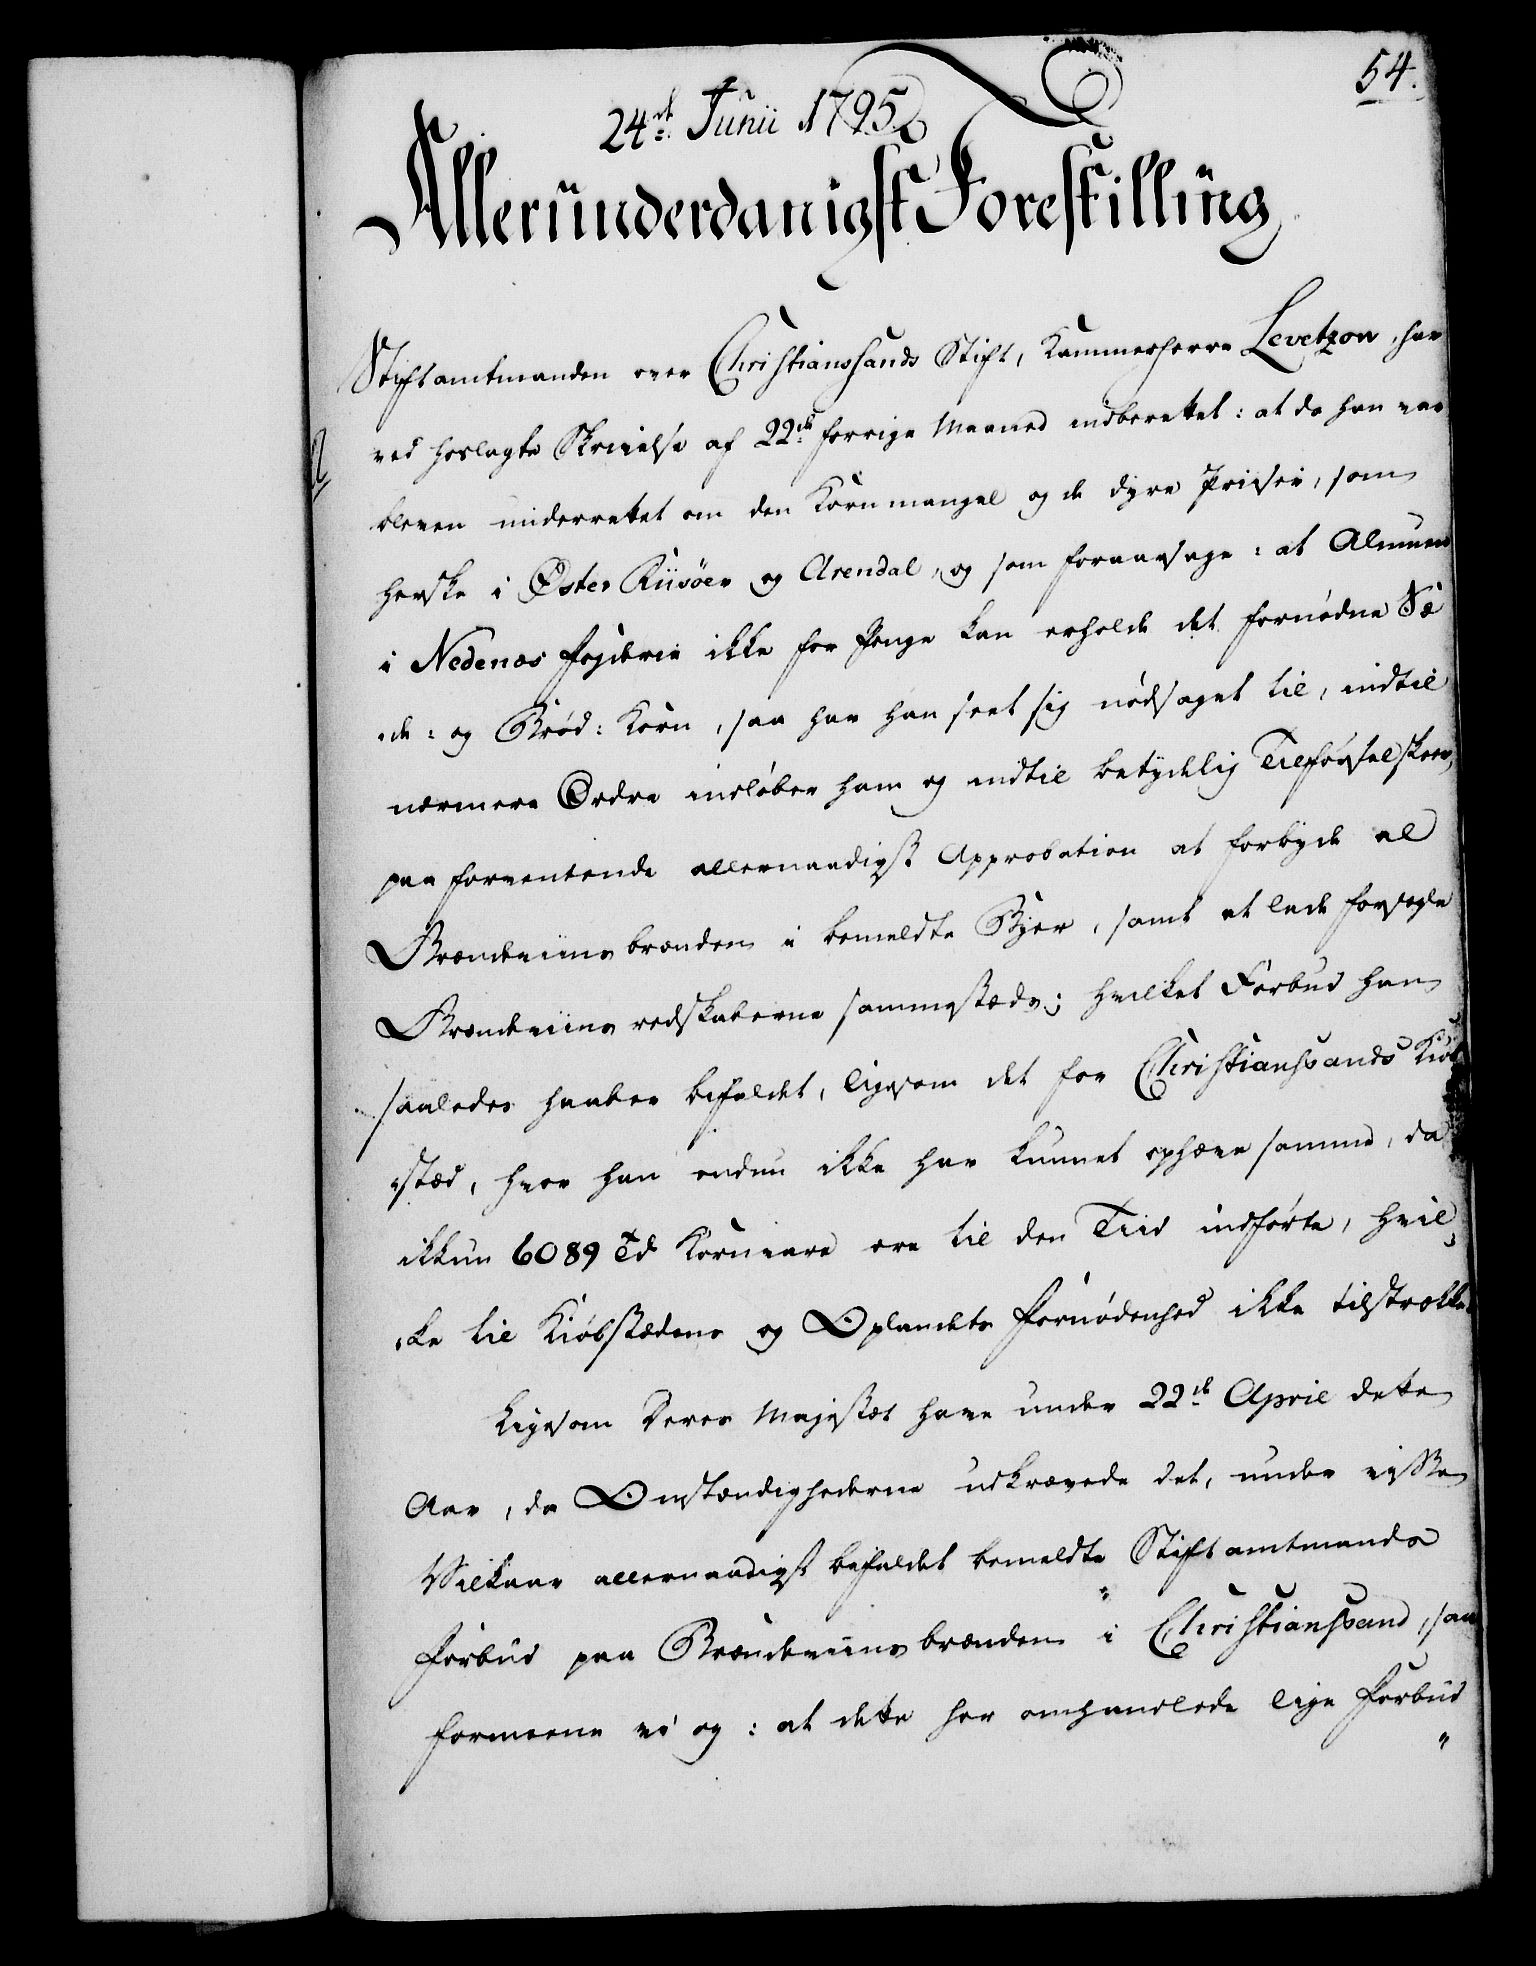 54.
24de Junii 1795
Alleründerdanigst Forestilling
Stiftamtmanden over Christianssands Stift, Kammerherre Levetzow, har
ved hoslagte Skrivelse af 22de forrige Maaned indberettet: at da han var
bleven underrettet om den Kornmangel og de dyre Priiser, som
herske i Øster Riisöer og Arendal, og som foraarsage: at Almuen
i Nedenæs Fogderie ikke for Penge kan erholde det fornødne Sæ
de: og Brød: Korn, saa har han seet sig nødsaget til, indtil
nærmere Ordre indløber ham og indtil betydelig Tilførsel skeer,
paa forventende allernaadigst Approbation at forbyde al
Brændeviins brænden i bemeldte Byer, samt at lade forsegle
Brændeviins redskaberne sammestæds; hvilket Forbud han
saaledes haaber befalet, ligesom det for Christiansands Kiöb
stæd, hvor han endnu ikke har kunnet ophæve samme, da
ikkun 6089 Td Kornvare ere til den Tiid indførte, hvil
ke til Kiöbstædens og Oplandets Fornødenhed ikke tilstrække
Ligesom Deres Majestæt have under 22de April dette
Aar, da Omstændighederne udkrævede det, under visse
Vilkaar allernaadigst befaldet bemeldte Stiftamtmands
Forbud paa Brændeviins brænden i Christiansand, saa
formeene vi og: at dette her omhandlede lige Forbud